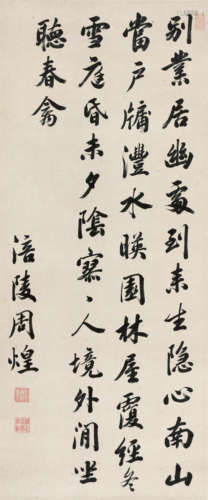 别業居幽處到来生隐心南山
當户牖灃水暎園林屋覆經冬
雪庭昏未夕陰寥〻人境外閒坐
聽春禽
涪陵周煌